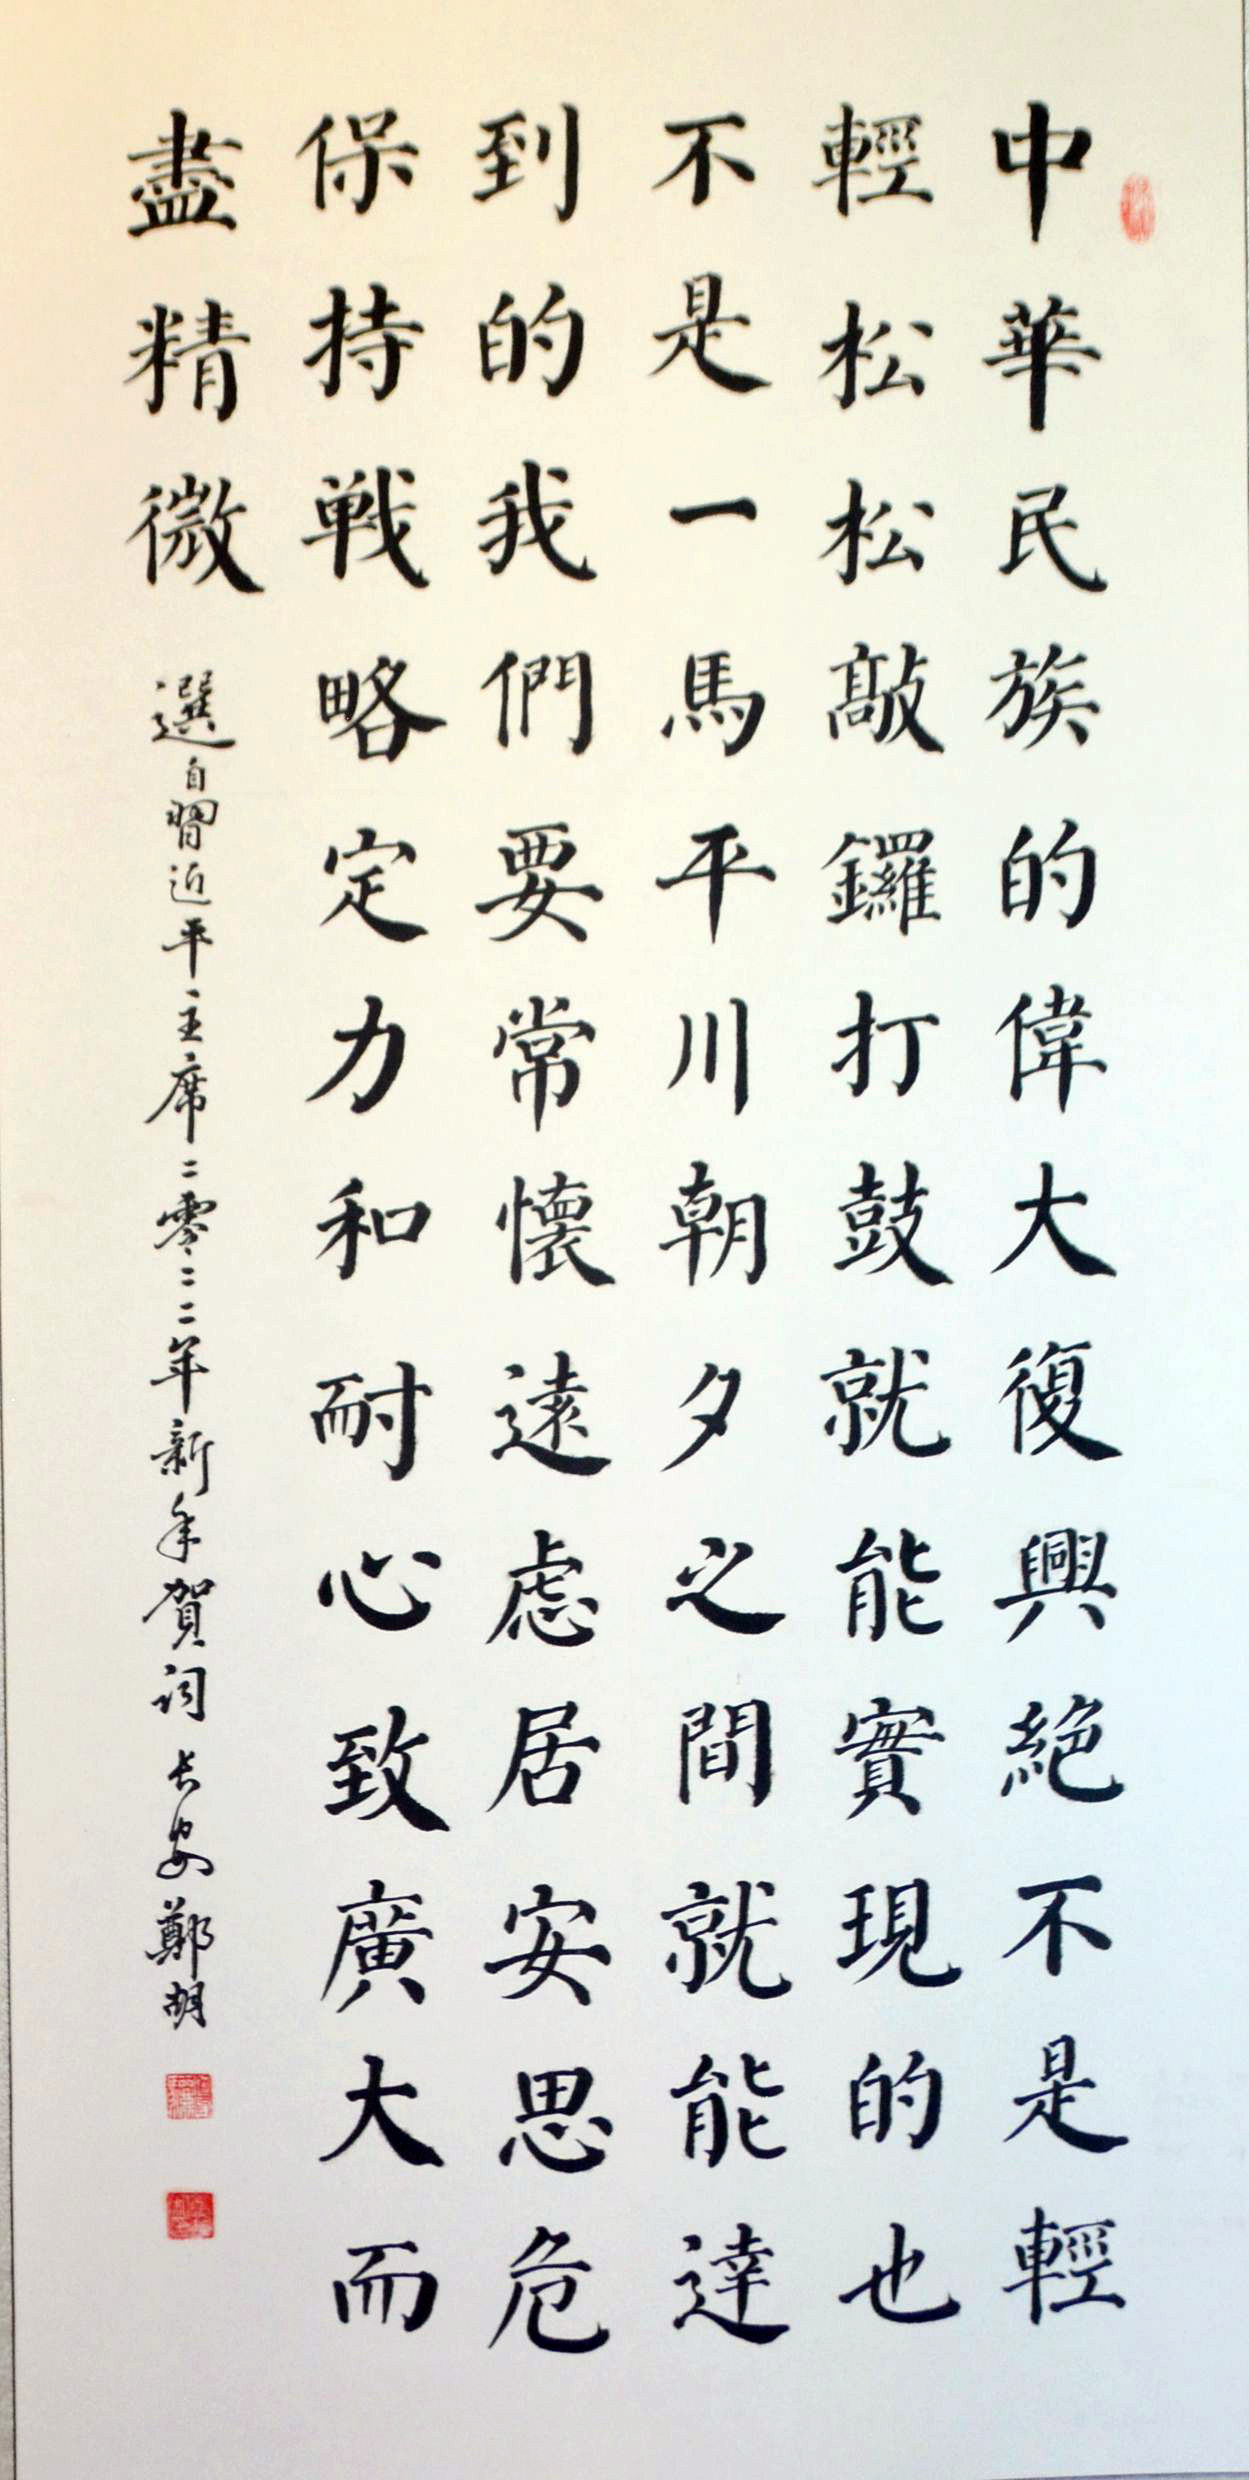 中華民族的偉大復興絕不是輕
輕松松敲鑼打鼓就能實現的也
不是一馬平川朝夕之間就能達
到的我們要常懷遠慮居安思危
保持戦略定力和耐心致廣大而
盡精微
選自習近平主席二零二二年新年賀詞 长安鄭胡